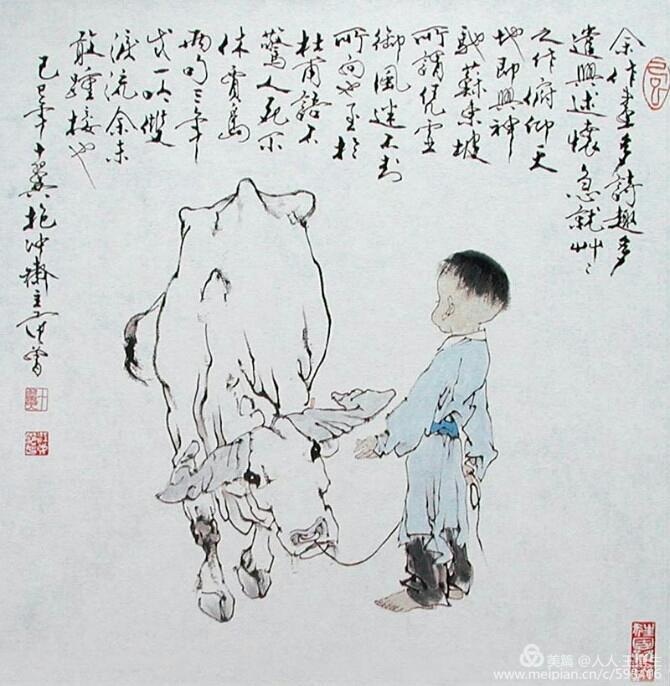 余作畫多詩趣多
遣興述懷急就艸〻
之作府仰天
地即興神
馳蘇東坡
所謂凭虛
御風迷不知
所向也至於
杜甫語不
驚人死不
休賈島
兩句三年
成一吟雙
淚流余未
敢踵接也
己巳年十翼抱冲齋主范曾
美篇 @人人王生
www.meipian.cn/c/593